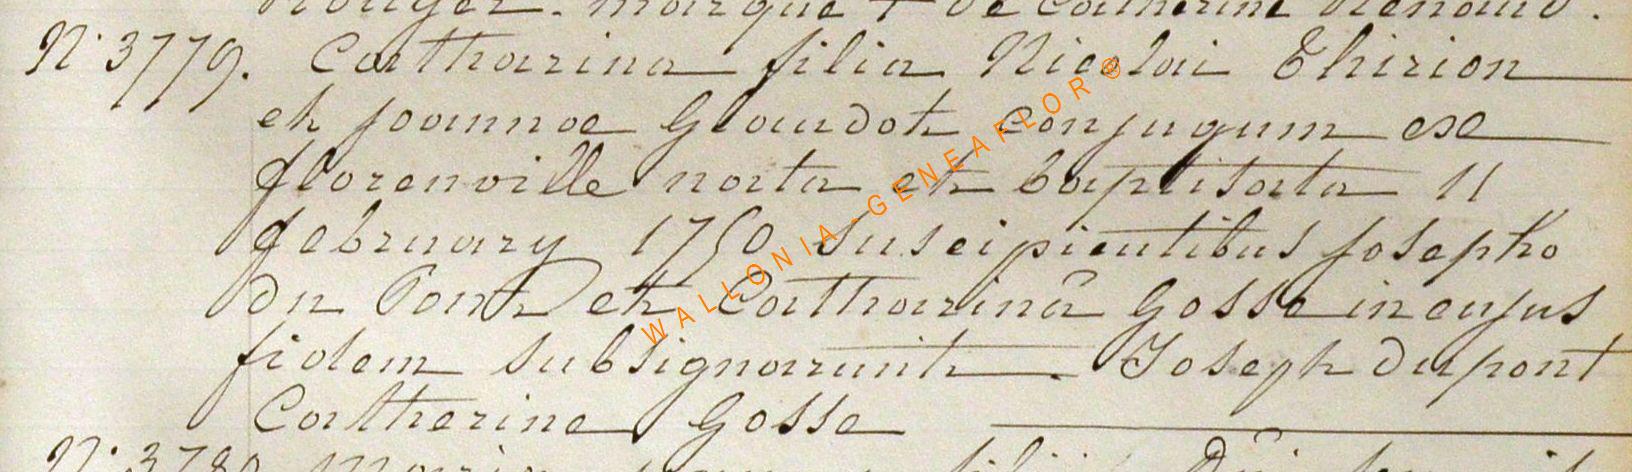 marque + de Catherine Renaud.
N° 3779. Catharina filia Nicolai Thirion
et Joannae Glaudot conjugum ese
florenville nata et baptisata 11
february 1750 suscipientibus Josepho
du Pont et Catharinâ Gosse in cujus
fidem subsignarunt. Joseph Dupont
Catherine Gosse
N° 3780
WALLONIA-GENEAFLOR®